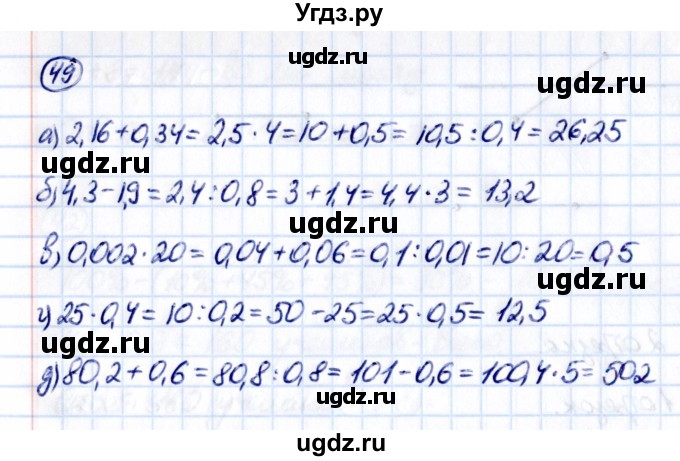 Угдз.ру
ugdz.ru ugdz.ru
49
а) 2,16+0,34=2,5·4=10+0,5=10,5:0,4=26,25
ugdz.ru ugdz.ru
б) 4,3-1,9=2,4:0,8=3+1,4=4,4·3=13,2
ugdz.ru
в) 0,002·20=0,04+0,06=0,1:0,01=10:20=0,5
ugdz.ru ugdz.ru
г) 25·0,4=10:0,2=50-25=25·0,5=12,5
ugdz.ru
д) 80,2+0,6=80,8:0,8=101-0,6=100,4·5=502
ugdz.ru ugdz.ru
ugdz.ru